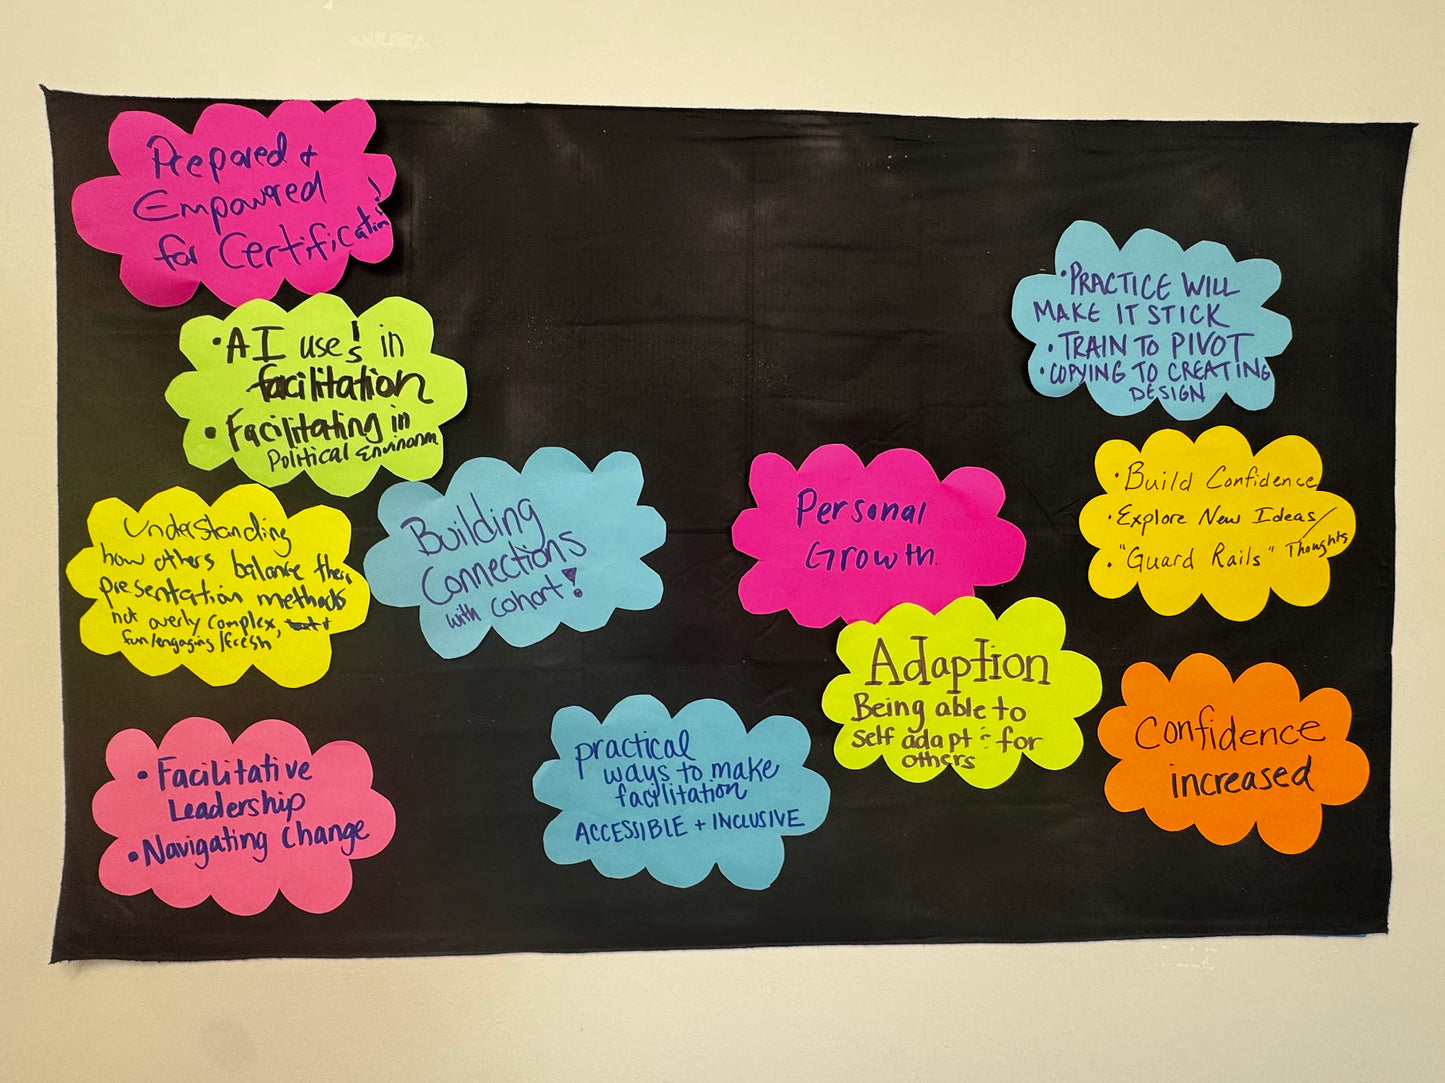 Prepared +
Empowered
for Certification!
• AI use's in
facilitation
• Facilitating in
Political Environm
Understanding
how others balance their
presentation methods
not overly complex,
fun/engaging/fresh
Building
Connections
with cohort!
• Facilitative
Leadership
• Navigating Change
practical
ways to make
facilitation
ACCESSIBLE + INCLUSIVE
Personal
Growth.
Adaption
Being able to
self adapt & for
others
• PRACTICE WILL
MAKE IT STICK
• TRAIN TO PIVOT
• COPYING TO CREATING
DESIGN
• Build Confidence
• Explore New Ideas/
Thoughts
• "Guard Rails"
Confidence
increased